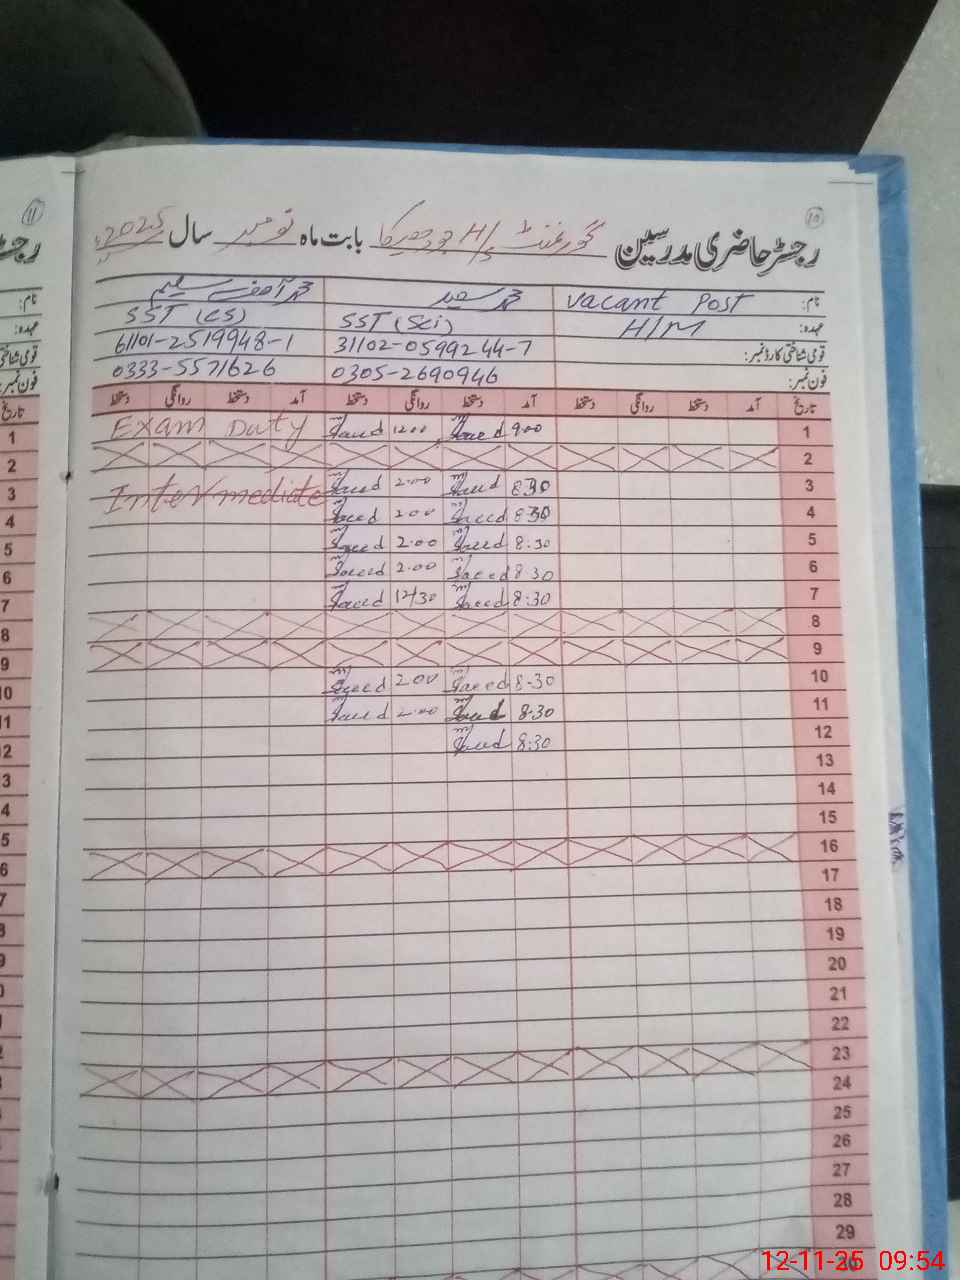 10
رجسٹر حاضری مدرسین گورنمنٹ H/S بابت ماہ نومبر سال 2025ء
نام: Vacant Post محمد سعید محمد آصف سلیم
عہدہ: H/M SST (Sci) SST (CS)
قومی شناختی کارڈ نمبر: 31102-0599244-7 61101-2519948-1
فون نمبر: 0305-2690946 0333-5571626
تاریخ آمد دستخط روانگی دستخط آمد دستخط روانگی دستخط آمد دستخط روانگی دستخط
1 9:00 Saeed 12:00 Saeed Exam Duty
2
3 8:30 Saeed 2:00 Saeed Intermediate
4 8:30 Saeed 2:00 Saeed
5 8:30 Saeed 2:00 Saeed
6 8:30 Saeed 2:00 Saeed
7 8:30 Saeed 12/30 Saeed
8
9
10 8:30 Saeed 2:00 Saeed
11 8:30 Saeed 2:00 Saeed
12 8:30 Saeed
13
14
15
16
17
18
19
20
21
22
23
24
25
26
27
28
29
30
11
رجسٹر
نام:
عہدہ:
قومی شناختی
فون نمبر:
تاریخ
1
2
3
4
5
6
7
8
9
10
11
12-11-25 09:54